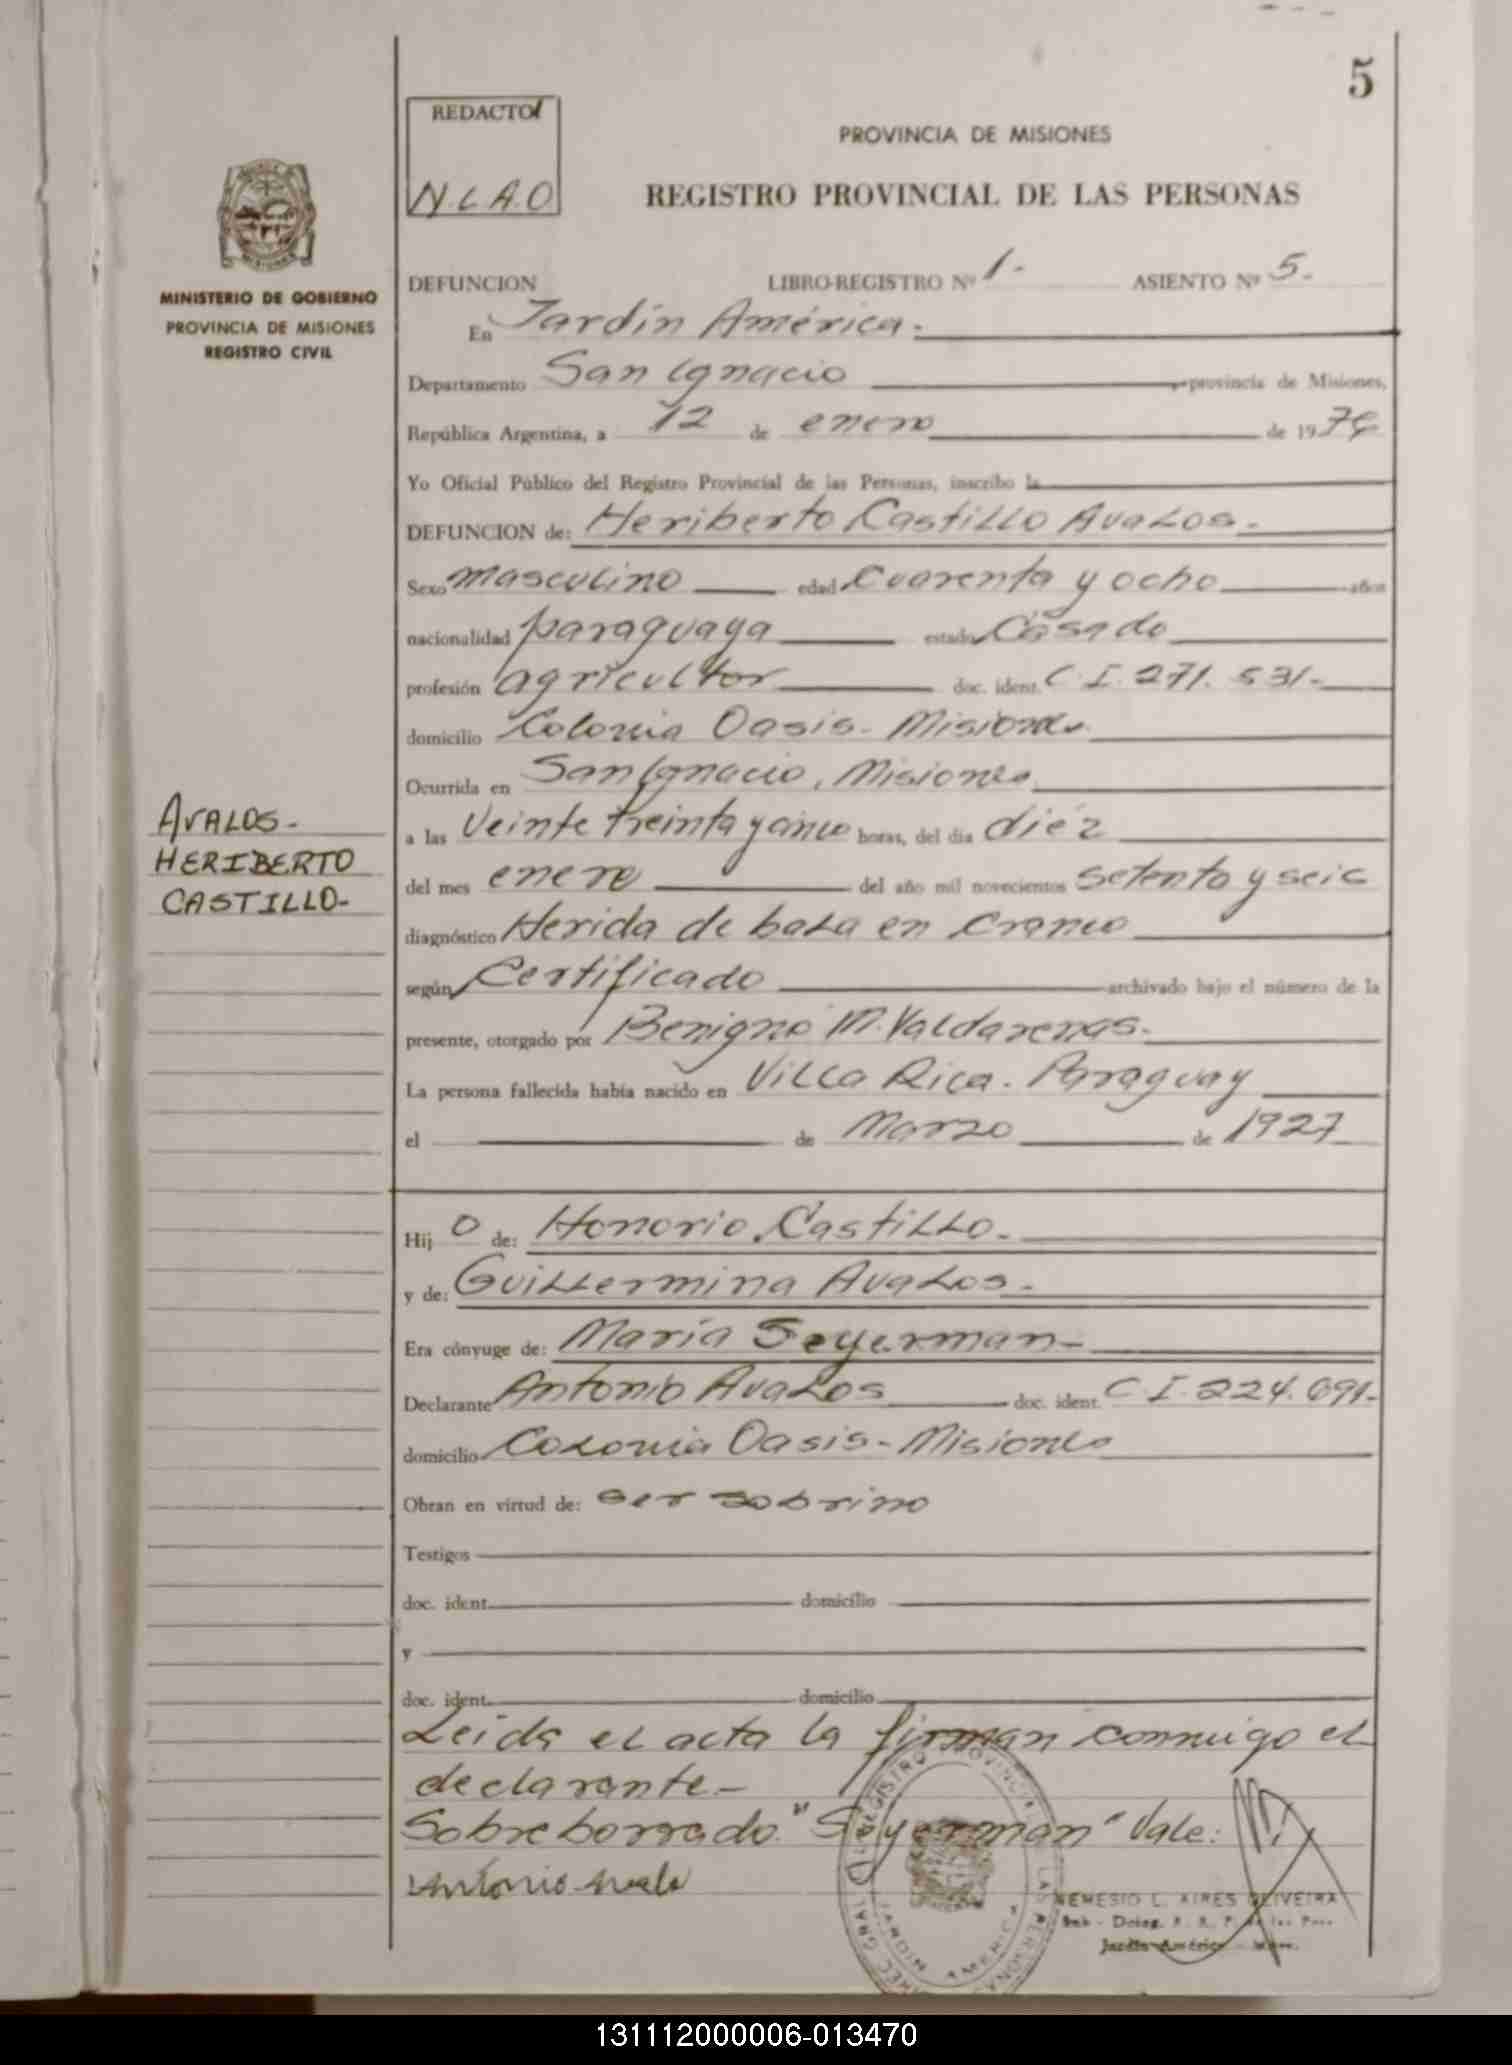 5
REDACTOR
N.L.A.O
PROVINCIA DE MISIONES
REGISTRO PROVINCIAL DE LAS PERSONAS
MINISTERIO DE GOBIERNO
PROVINCIA DE MISIONES
REGISTRO CIVIL
DEFUNCION LIBRO-REGISTRO Nº 1.- ASIENTO Nº 5.-
En Jardín América.-
Departamento San Ignacio provincia de Misiones,
República Argentina, a 12 de enero de 1976
Yo Oficial Público del Registro Provincial de las Personas, inscribo la
DEFUNCION de: Heriberto Castillo Avalos.-
Sexo masculino edad Cuarenta y ocho años
nacionalidad paraguaya estado Casado
profesión agricultor doc. ident. C.I. 271.531.-
domicilio Colonia Oasis - Misiones
Ocurrida en San Ignacio, Misiones
a las Veinte treinta y cinco horas, del día diez
del mes enero del año mil novecientos setenta y seis
diagnóstico Herida de bala en Craneo
según Certificado archivado bajo el número de la
presente, otorgado por Benigno M. Valdarenas.-
La persona fallecida había nacido en Villa Rica. Paraguay
el de Marzo de 1927
AVALOS-
HERIBERTO
CASTILLO-
Hij o de: Honorio Castillo.-
y de: Guillermina Avalos.-
Era cónyuge de: María Seyerman-
Declarante Antonio Avalos doc. ident. C.I. 224.691-
domicilio Colonia Oasis - Misiones
Obran en virtud de: ser sobrino
Testigos
doc. ident. domicilio
y
doc. ident. domicilio
Leida el acta la firman conmigo el
declarante.-
Sobreborrado "Seyerman" Vale:
Antonio Avalo
DIREC. GRAL. DE REGISTRO PROVINCIAL DE LAS PERSONAS
JARDIN AMERICA
NEMESIO L. AIRES OLIVEIRA
Jardín América
131112000006-013470